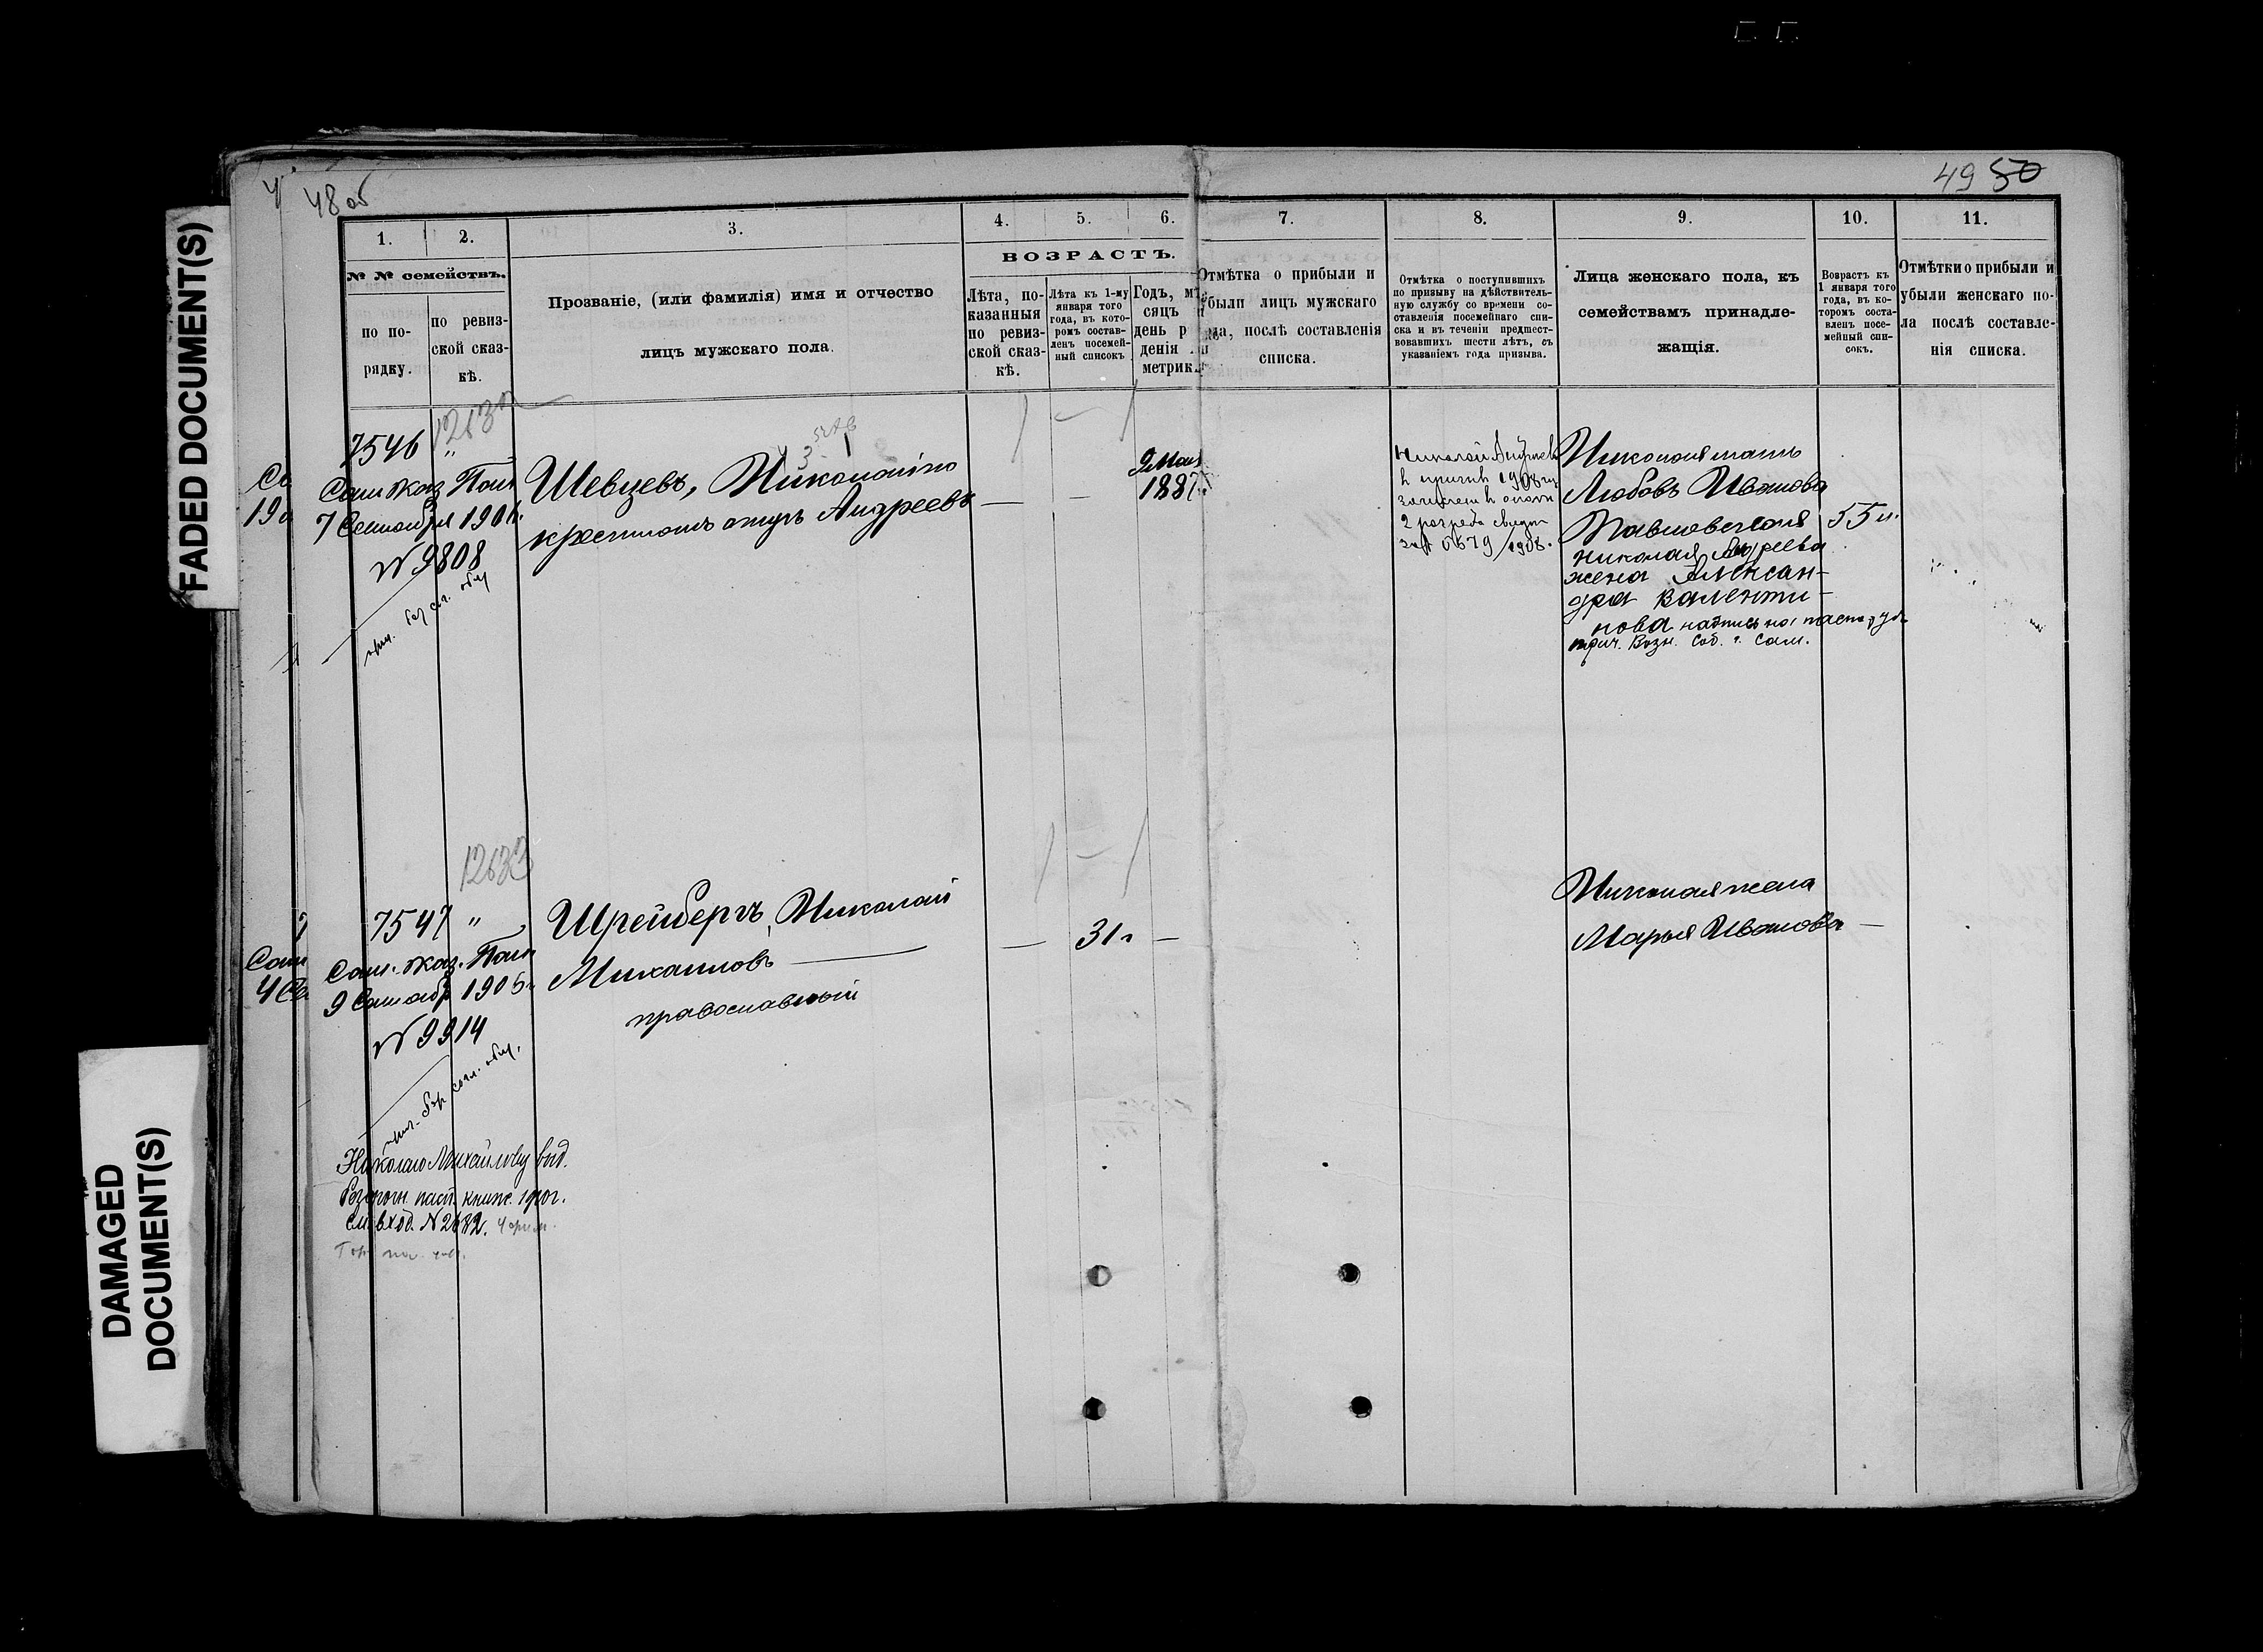 FADED DOCUMENT(S)
DAMAGED
DOCUMENT(S)
48 об
49 50
1.
2.
3.
4.
5.
6.
7.
8.
9.
10.
11.
№ № семействъ.
по по-
рядку.
по ревиз-
ской сказ-
кѣ.
Прозваніе, (или фамилія) имя и отчество
лицъ мужскаго пола.
ВОЗРАСТЪ.
Лѣта, по-
казанныя
по ревиз-
ской сказ-
кѣ.
Лѣта къ 1-му
января того
года, въ кото-
ромъ состав-
ленъ посемей-
ный списокъ
Годъ, мѣ
сяцъ
день р
денія
метрик.
Отмѣтка о прибыли и
были лицъ мужскаго
ла, послѣ составленія
списка.
Отмѣтка о поступившихъ
по призыву на дѣйствитель-
ную службу со времени со-
ставленія посемейнаго спи-
ска и въ теченіи предшест-
вовавшихъ шести лѣтъ, съ
указаніемъ года призыва.
Лица женскаго пола, къ
семействамъ принадле-
жащія.
Возрастъ къ
1 января того
года, въ ко-
торомъ соста-
вленъ посе-
мейный спи-
сокъ.
Отмѣтки о прибыли и
убыли женскаго по-
ла послѣ составле-
нія списка.
7546 "
Сам. Каз. Пал.
7 Сентября 190
№ 9808
Шевцевъ, Николай по
крестномъ отцѣ Андреевъ —
—
9 Мая
1887
Николай Андреев
1908
2 разряда
1908.
Николая мать
Любовь Иванова
55 л.
Николая Андреева
жена Алексан-
дра Валенти-
нова надпись на
прич. Возн. Соб. г. Сам.
1263
7547 "
Сам. Каз. Пал.
9 Сентябр 1906
№ 9914
Шрейбергъ, Николай
Михаиловъ —
православный
— 31 г —
Николая жена
Марья Иванова —
Николаю Михайлову выд.
безсрочн. пасп. книж.
См. вход. № 2682.